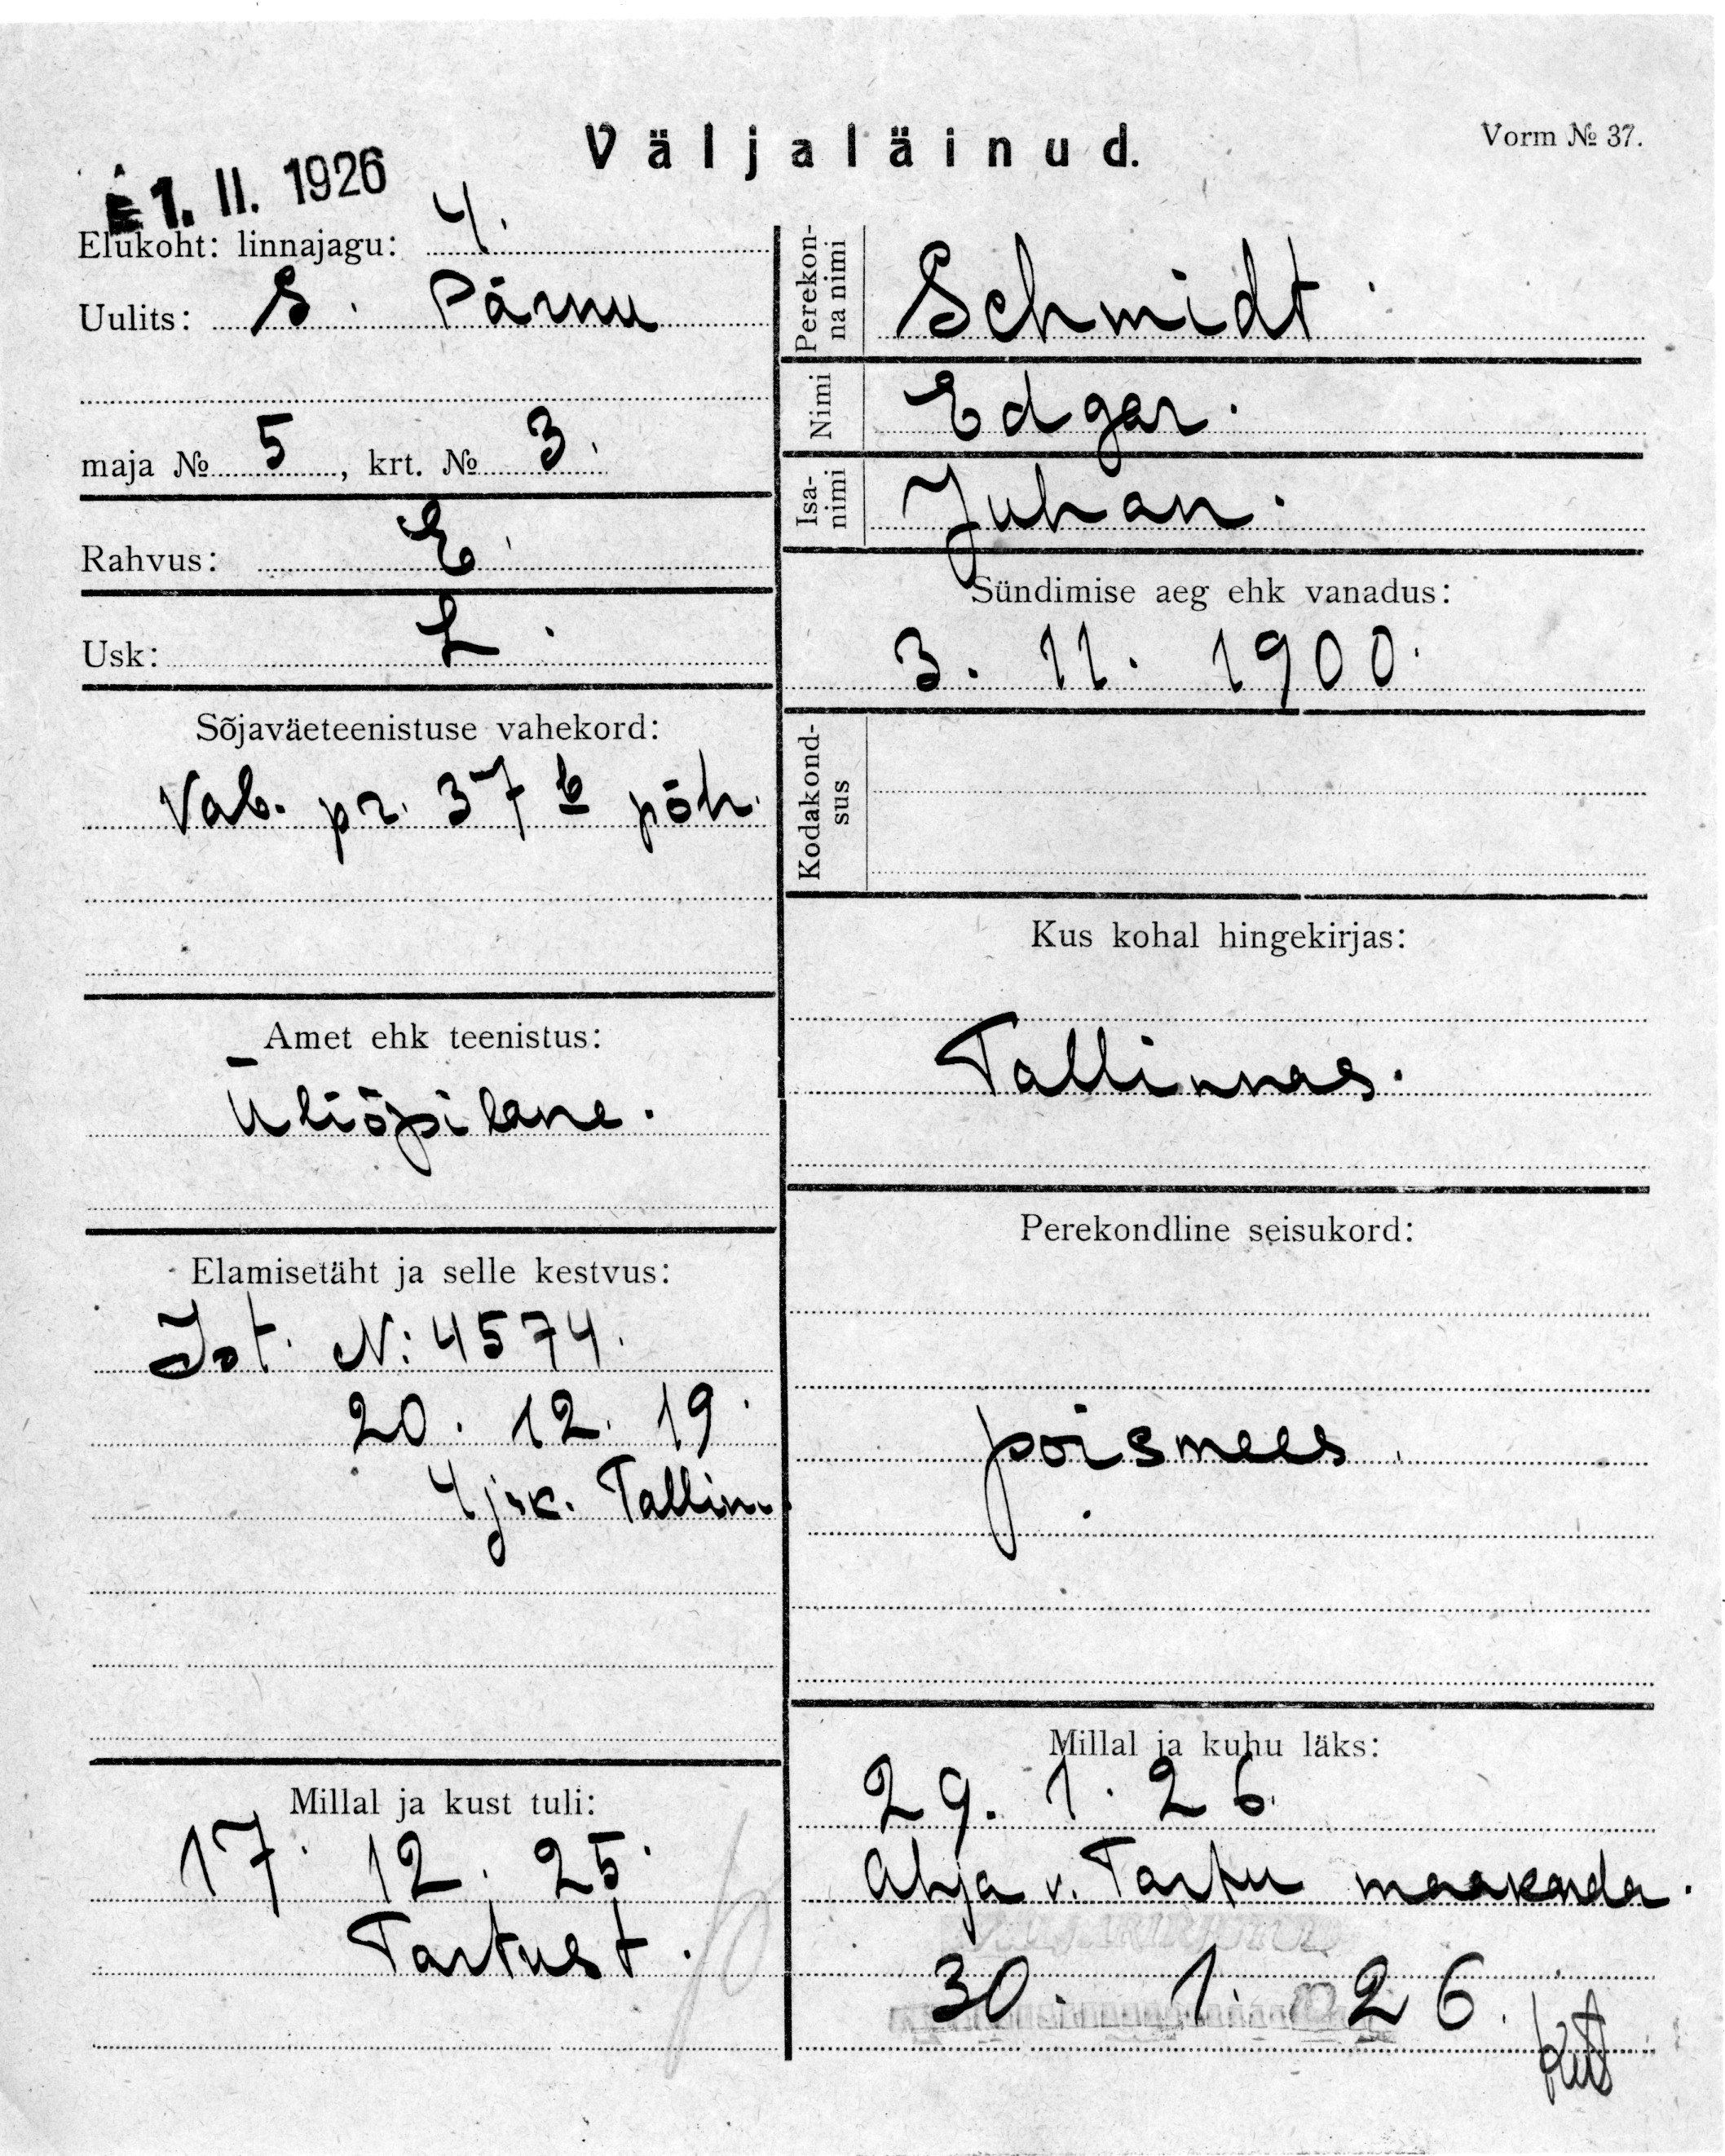 Väljaläinud.
Vorm № 37.
1. II. 1926
Elukoht: linnajagu: 4.
Uulits: S. Pärnu
maja № 5, krt. № 3.
Rahvus: E.
Usk: L.
Sõjaväeteenistuse vahekord:
Vab. pr. 37 b põh.
Amet ehk teenistus:
Üliõpilane.
Elamisetäht ja selle kestvus:
Ist. N: 4574.
20. 12. 19.
4 jsk. Tallinn.
Millal ja kust tuli:
17. 12. 25.
Tartust.
Perekonna nimi
Schmidt.
Nimi
Edgar.
Isanimi
Juhan.
Sündimise aeg ehk vanadus:
3. 11. 1900.
Kodakondsus
Kus kohal hingekirjas:
Tallinnas.
Perekondline seisukord:
poismees.
Millal ja kuhu läks:
29. 1. 26.
Ahja v. Tartu maakonda.
VÄLJAKIRJUTUD
30. 1. 26.